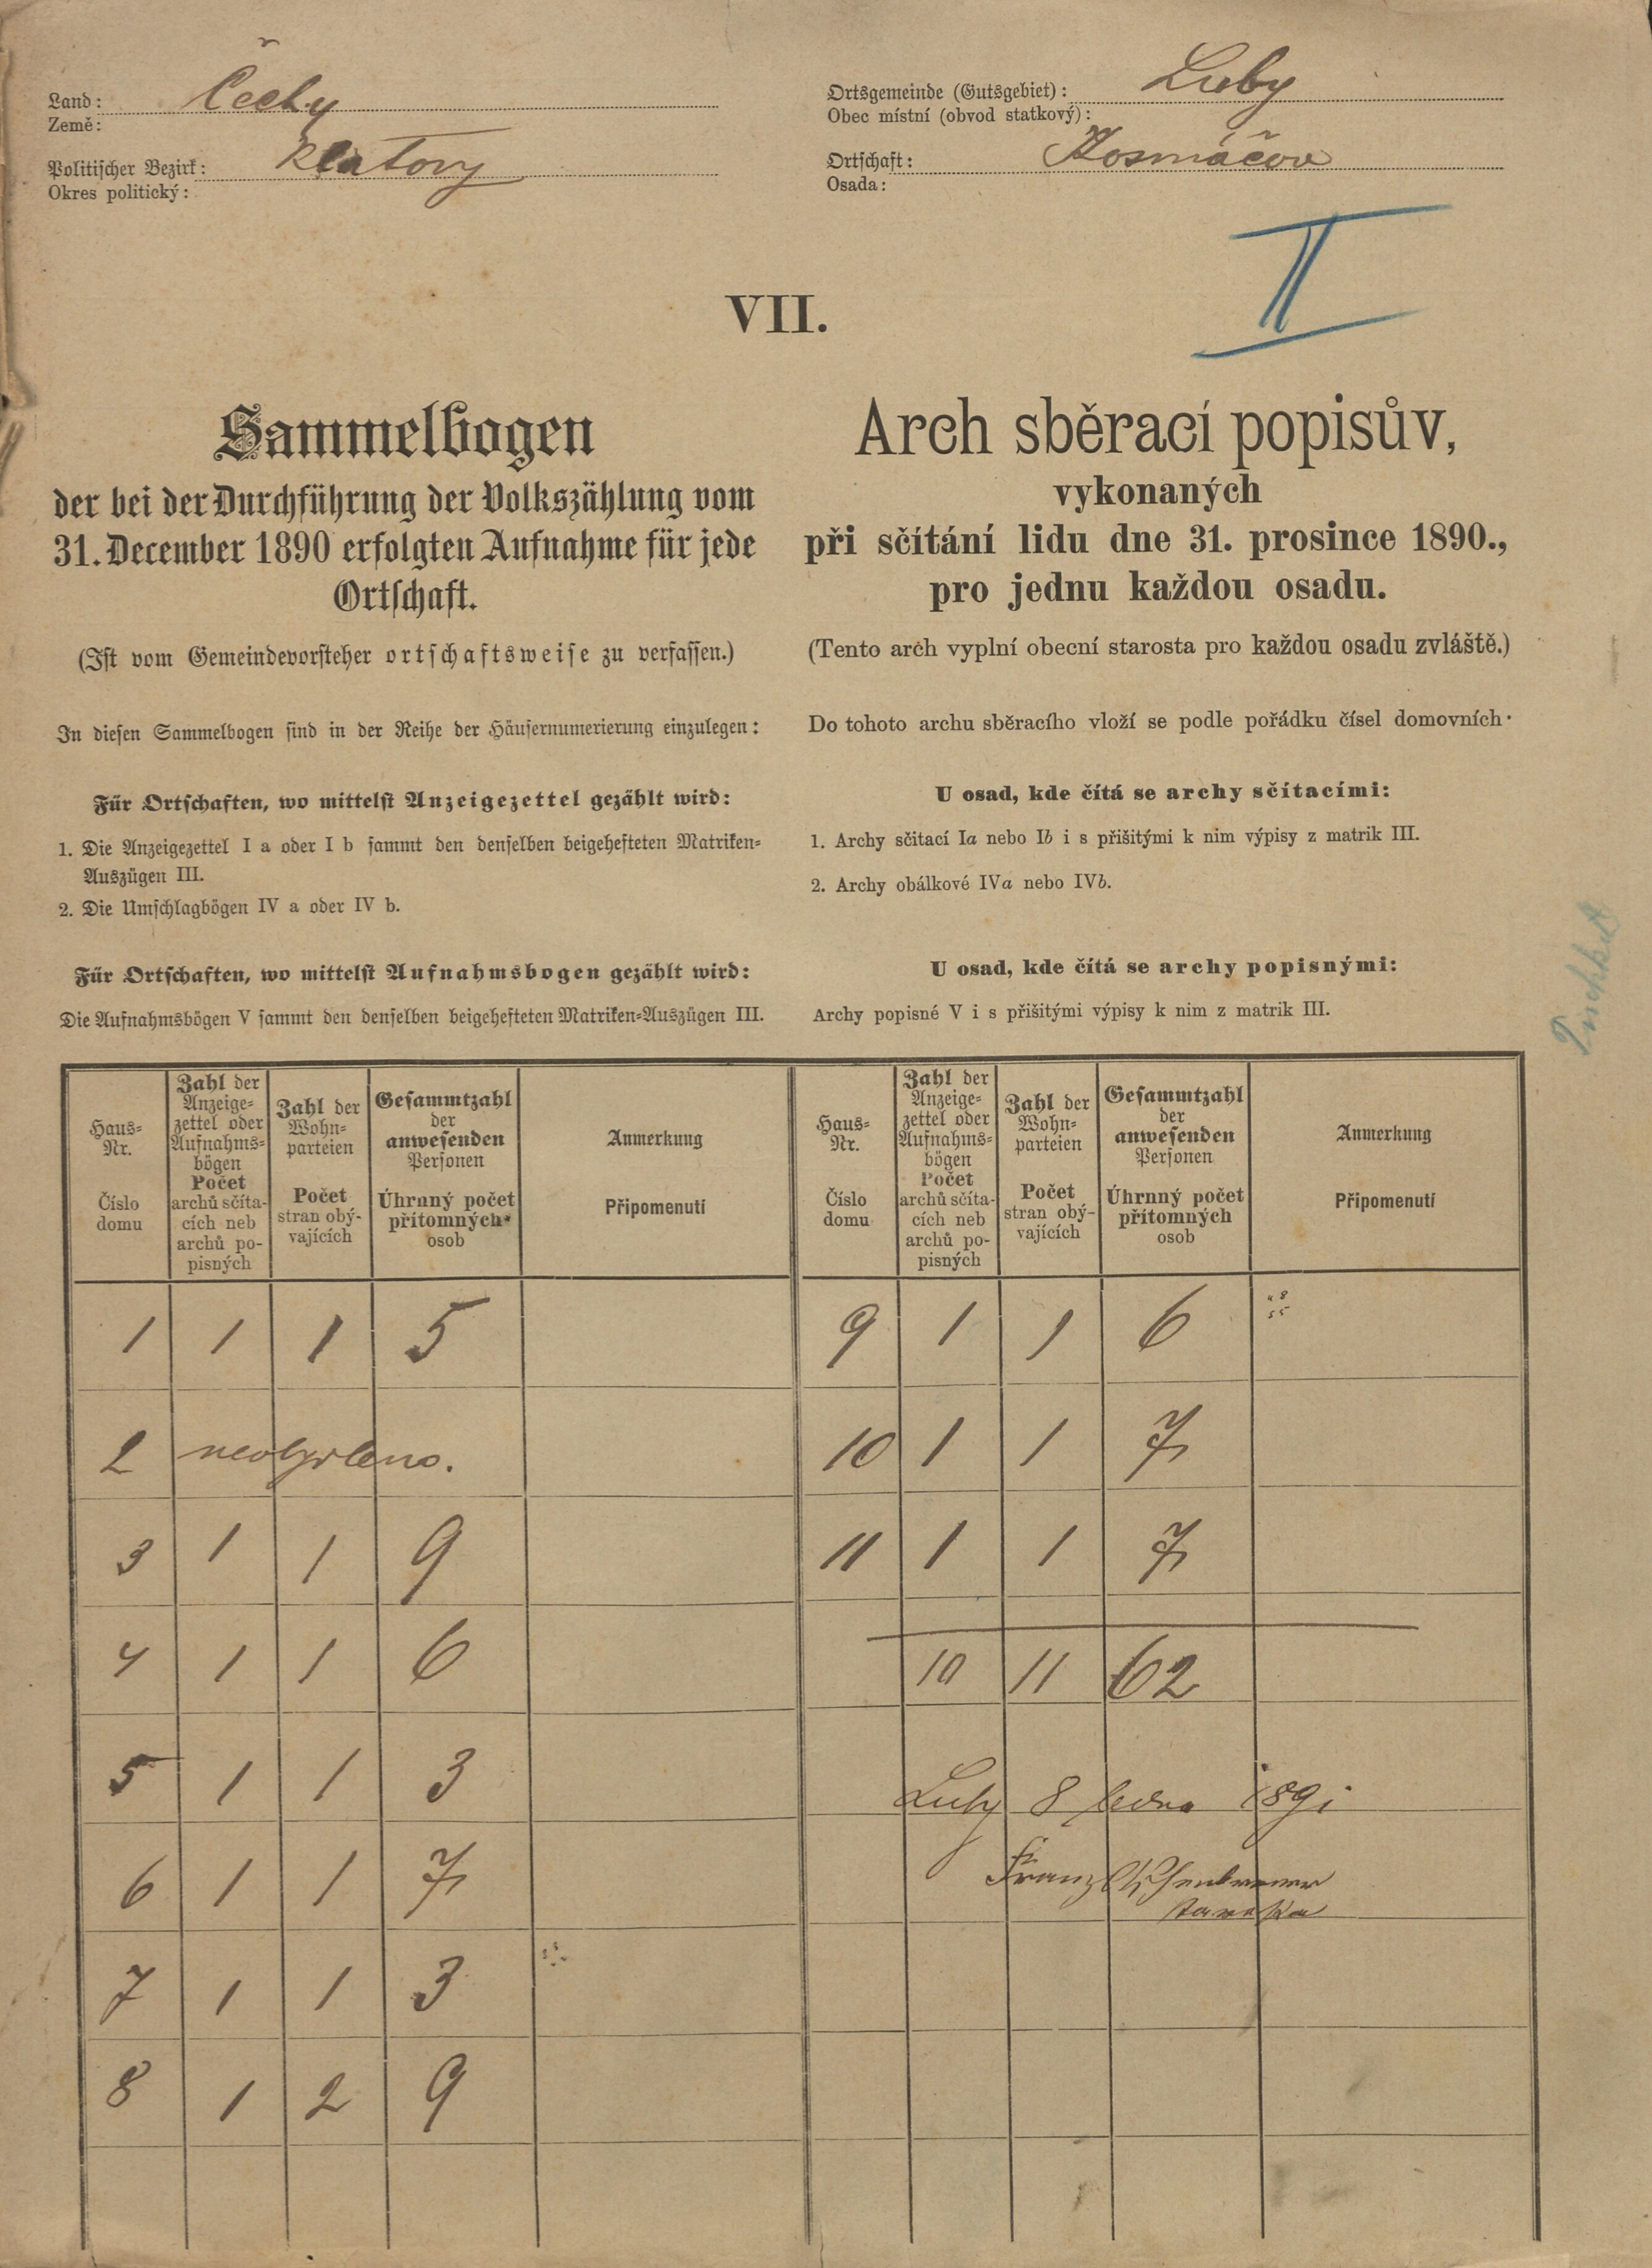 Land: Čechy
Země:
Politischer Bezirk: Klatovy
Okres politický:
Ortsgemeinde (Gutsgebiet): Luby
Obec místní (obvod statkový):
Ortschaft: Kosmáčov
Osada:
II
VII.
Sammelbogen
der bei der Durchführung der Volkszählung vom
31. December 1890 erfolgten Aufnahme für jede
Ortschaft.
(Ist vom Gemeindevorsteher ortschaftsweise zu verfassen.)
In diesen Sammelbogen sind in der Reihe der Häusernumerierung einzulegen:
Für Ortschaften, wo mittelst Anzeigezettel gezählt wird:
1. Die Anzeigezettel I a oder I b sammt den denselben beigehefteten Matriken-
Auszügen III.
2. Die Umschlagbögen IV a oder IV b.
Für Ortschaften, wo mittelst Aufnahmsbogen gezählt wird:
Die Aufnahmsbögen V sammt den denselben beigehefteten Matriken-Auszügen III.
Arch sběrací popisův,
vykonaných
při sčítání lidu dne 31. prosince 1890.,
pro jednu každou osadu.
(Tento arch vyplní obecní starosta pro každou osadu zvláště.)
Do tohoto archu sběracího vloží se podle pořádku čísel domovních·
U osad, kde čítá se archy sčítacími:
1. Archy sčitací Ia nebo Ib i s přišitými k nim výpisy z matrik III.
2. Archy obálkové IVa nebo IVb.
U osad, kde čítá se archy popisnými:
Archy popisné V i s přišitými výpisy k nim z matrik III.
Haus-
Nr.
Číslo
domu
Zahl der
Anzeige-
zettel oder
Aufnahms-
bögen
Počet
archů sčíta-
cích neb
archů po-
pisných
Zahl der
Wohn-
parteien
Počet
stran obý-
vajících
Gesammtzahl
der
anwesenden
Personen
Úhrnný počet
přítomných
osob
Anmerkung
Připomenutí
Haus-
Nr.
Číslo
domu
Zahl der
Anzeige-
zettel oder
Aufnahms-
bögen
Počet
archů sčíta-
cích neb
archů po-
pisných
Zahl der
Wohn-
parteien
Počet
stran obý-
vajících
Gesammtzahl
der
anwesenden
Personen
Úhrnný počet
přítomných
osob
Anmerkung
Připomenutí
1 1 1 5
2 neobydleno.
3 1 1 9
4 1 1 6
5 1 1 3
6 1 1 7
7 1 1 3
8 1 2 9
9 1 1 6
10 1 1 7
11 1 1 7
10 11 62
Luby 8 ledna 1891
Franz
starosta